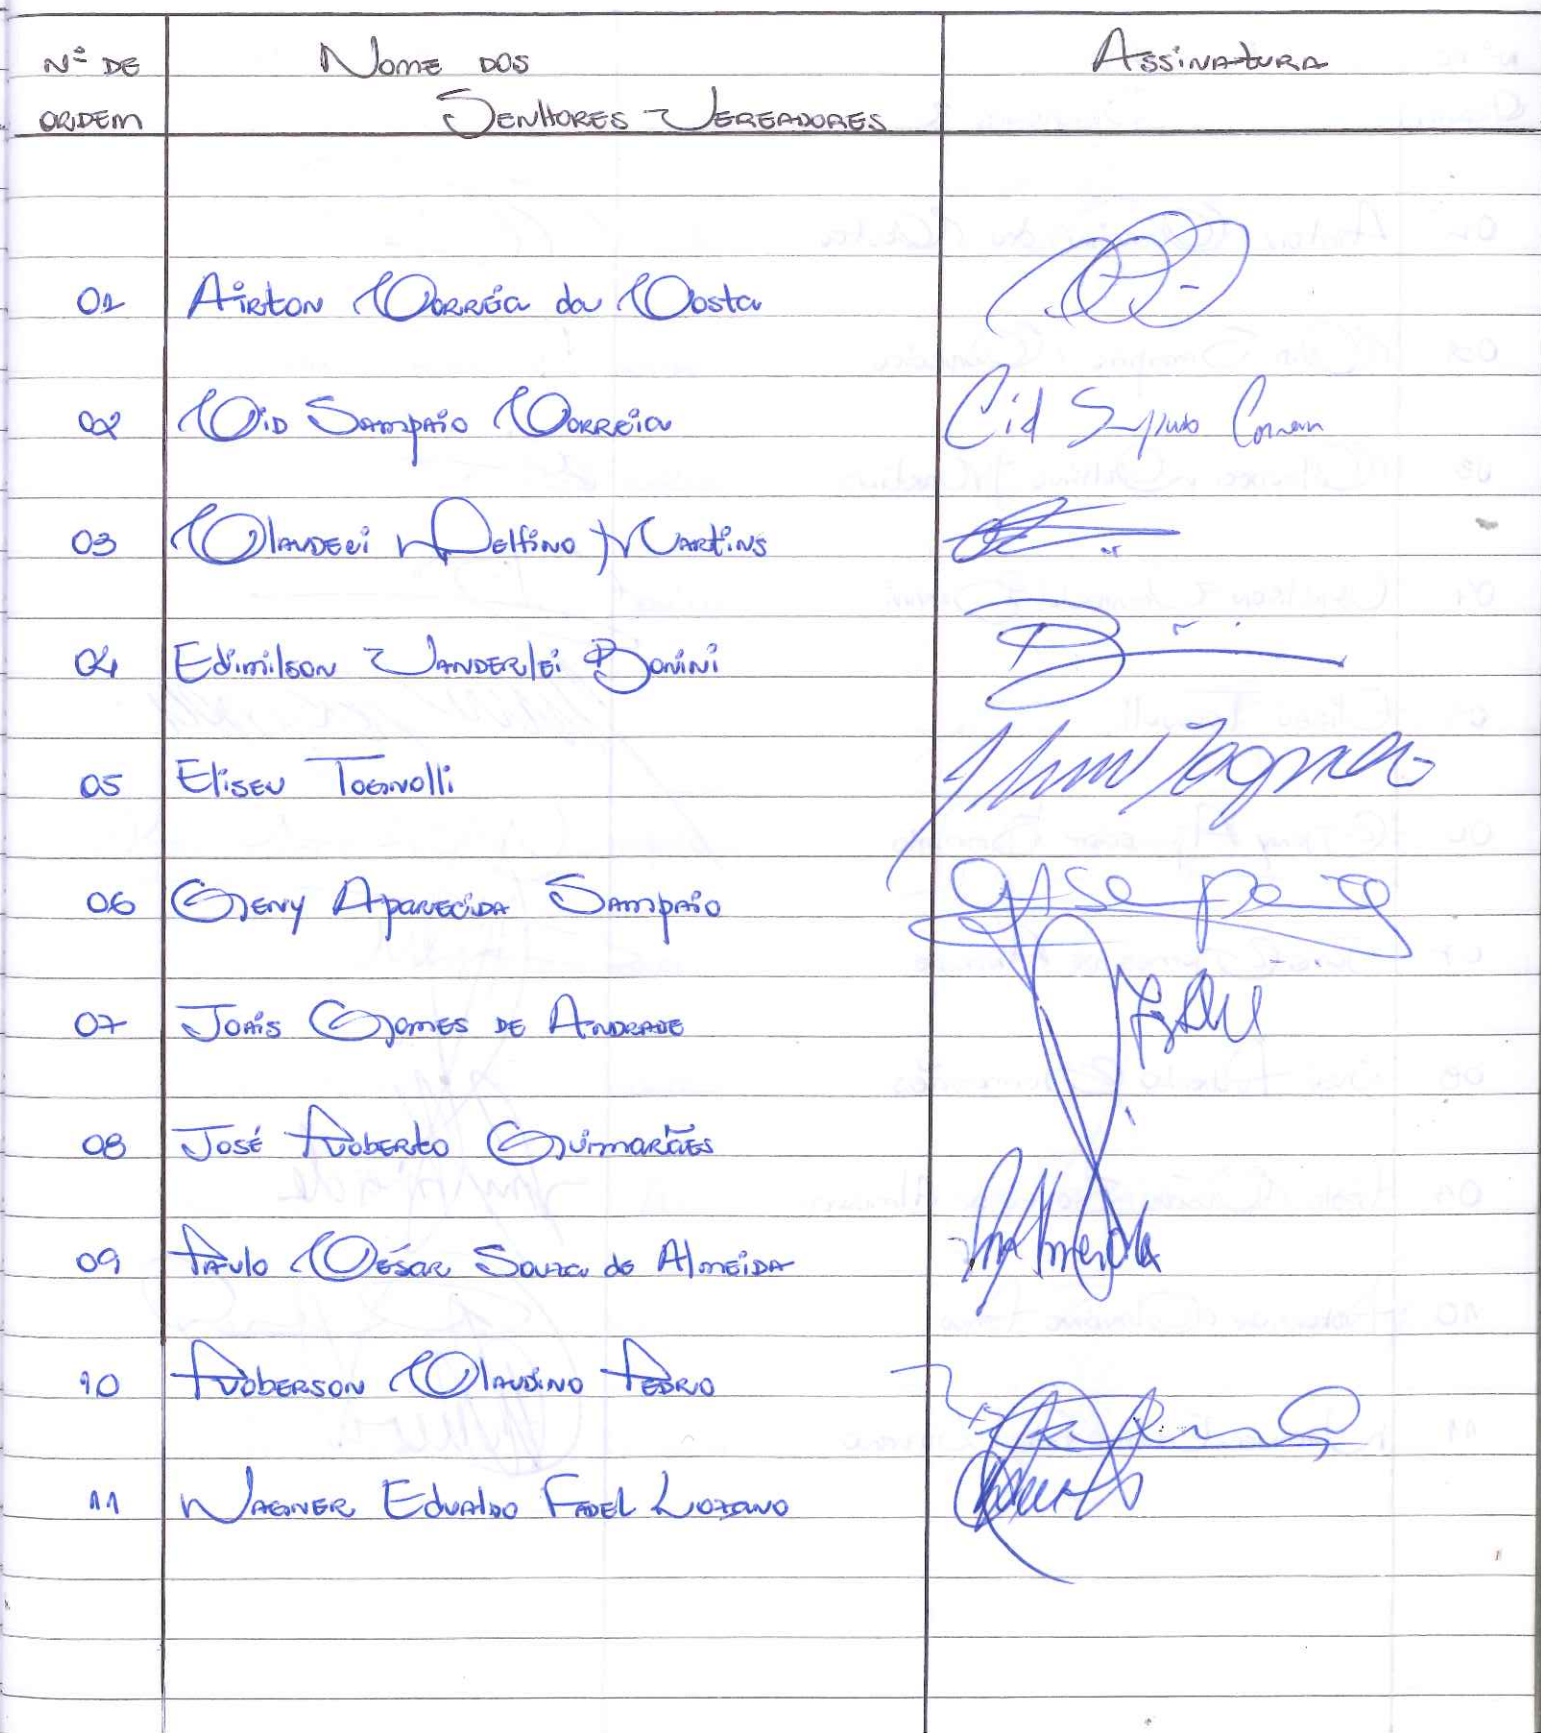 Nº DE Nome dos Assinatura
ORDEM Senhores Vereadores
01 Airton Corrêa da Costa
02 Cid Sampaio Correia Cid Sampaio Correia
03 Claudeci Delfino Martins
04 Edimilson Vanderlei Bonini
05 Eliseu Tognolli
06 Geny Aparecida Sampaio
07 Joais Gomes de Andrade
08 José Roberto Guimarães
09 Paulo César Souza de Almeida
10 Roberson Claudino Pedro
11 Wagner Edualdo Fadel Lozano